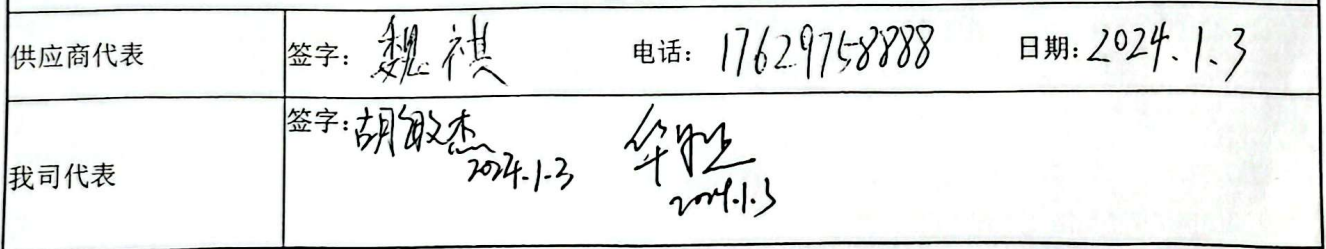 供应商代表 签字: 魏祺 电话: 17629758888 日期: 2024.1.3
我司代表 签字: 胡敏杰 华
2024.1.3 2024.1.3